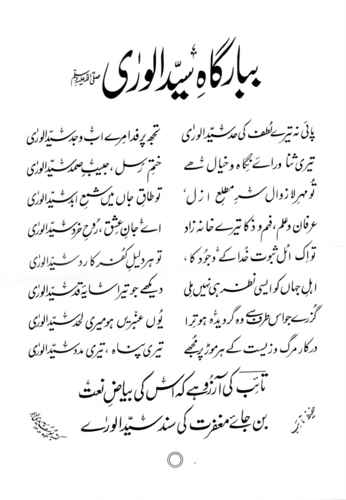 ببارگاہِ سیّد الورٰی ﷺ
پائی نہ تیرے لطف کی حد سیّد الورٰی تجھ پر فدا مرے اب و جد سیّد الورٰی
تیری ثنا ورائے نگاہ و خیال ہے ختمِ رسل، حبیبِ صمد سیّد الورٰی
تو مہرِ لازوال سرِ مطلعِ ازل، تو طاقِ جاں میں شمعِ ابد سیّد الورٰی
عرفان و علم، فہم و ذکا تیرے خانہ زاد اے جانِ عشق، روحِ خرد سیّد الورٰی
تو اک اٹل ثبوت خدا کے وجود کا، تو ہر دلیلِ کفر کا رد سیّد الورٰی
اہلِ جہاں کو ایسی نظر ہی نہیں ملی دیکھے جو تیرا سایۂ قد سیّد الورٰی
گزرے جو اس طرف سے وہ گرویدہ ہو ترا یوں عنبریں ہو میری لحد سیّد الورٰی
درکار مرگ و زیست کے ہر موڑ پر مجھے تیری پناہ، تیری مدد سیّد الورٰی
تائب کی آرزو ہے کہ اس کی بیاضِ نعت
بن جائے مغفرت کی سند سیّد الورٰے